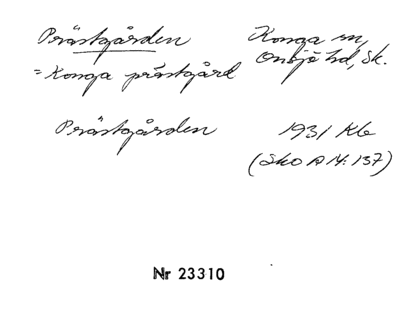 Prästgården Konga sn,
= Konga prästgård Onsjö hd, Sk.
Prästgården 1931 Kb
(Sko A 14: 137)
Nr 23310